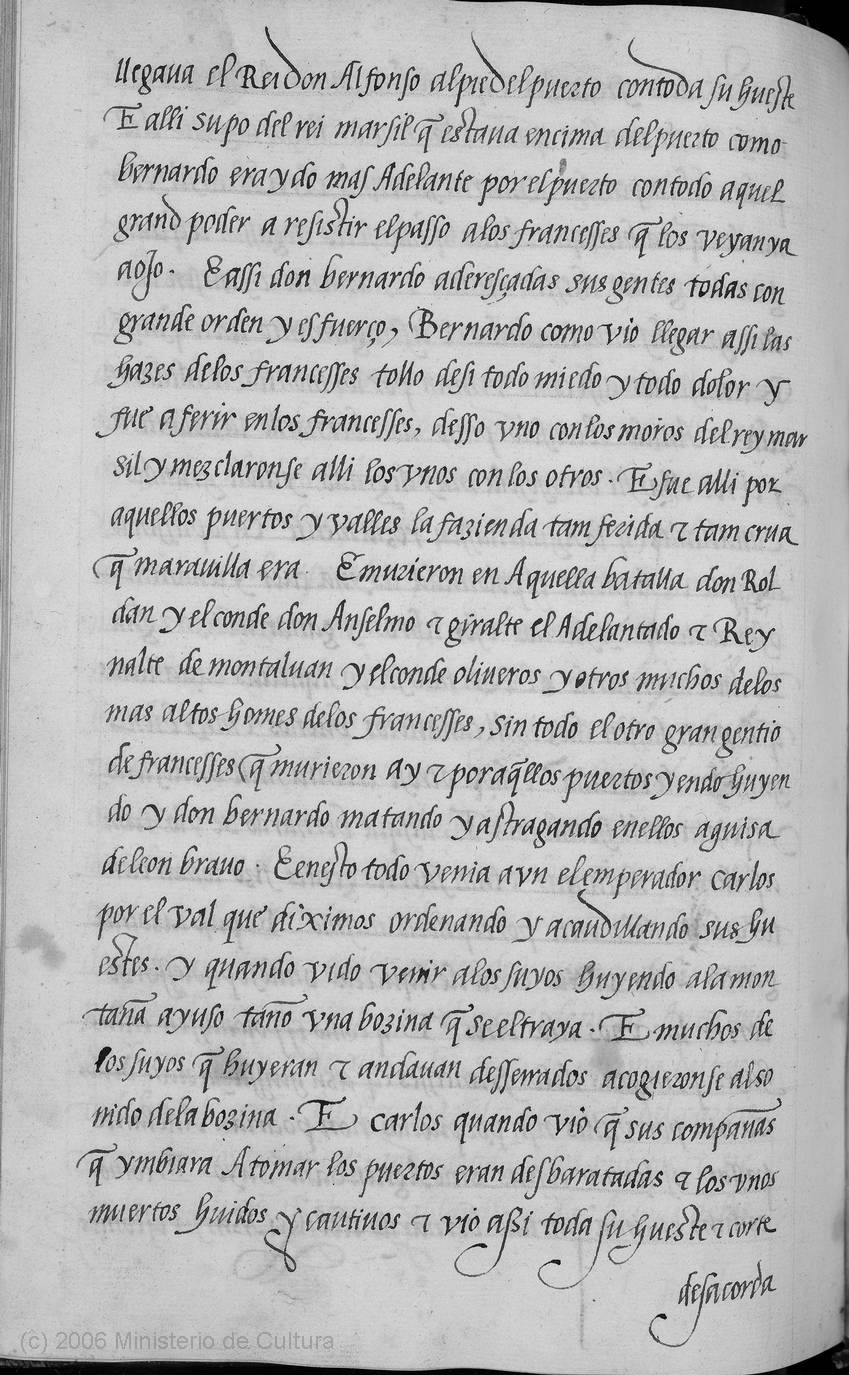 llegaua el Rei don Alfonso al pie del puerto con toda su hueste
E alli supo del rei marsil q̃ estaua encima del puerto como
bernardo era ydo mas Adelante por el puerto con todo aquel
grand poder a resistir el passo a los francesses q̃ los veyan ya
a ojo. E assi don bernardo aderesçadas sus gentes todas con
grande orden y esfuerço, Bernardo como vio llegar assi las
hazes de los francesses tollo de si todo miedo y todo dolor y
fue a ferir en los francesses, desso vno con los moros del rey mar
sil y mezclaronse alli los vnos con los otros. E fue alli por
aquellos puertos y valles la fazienda tam ferida & tam crua
q̃ marauilla era. E murieron en Aquella batalla don Rol
dan y el conde don Anselmo & giralte el Adelantado & Rey
nalte de montaluan y el conde oliueros y otros muchos de los
mas altos homes de los francesses, sin todo el otro gran gentio
de francesses q̃ murieron ay & por aq̃llos puertos yendo huyen
do y don bernardo matando y astragando en ellos a guisa
de leon brauo. E en esto todo venia avn el emperador carlos
por el val que diximos ordenando y acaudillando sus hu
estes. y quando vido venir a los suyos huyendo a la mon
tan̄a ayuso tan̄o vna bozina q̃ se el traya. E muchos de
los suyos q̃ huyeran & andauan desserrados acogieronse al so
nido de la bozina. E carlos quando vio q̃ sus compan̄as
q̃ ymbiara A tomar los puertos eran desbaratadas & los vnos
muertos huidos y cautiuos & vio assi toda su hueste & corte
desacorda
(c) 2006 Ministerio de Cultura